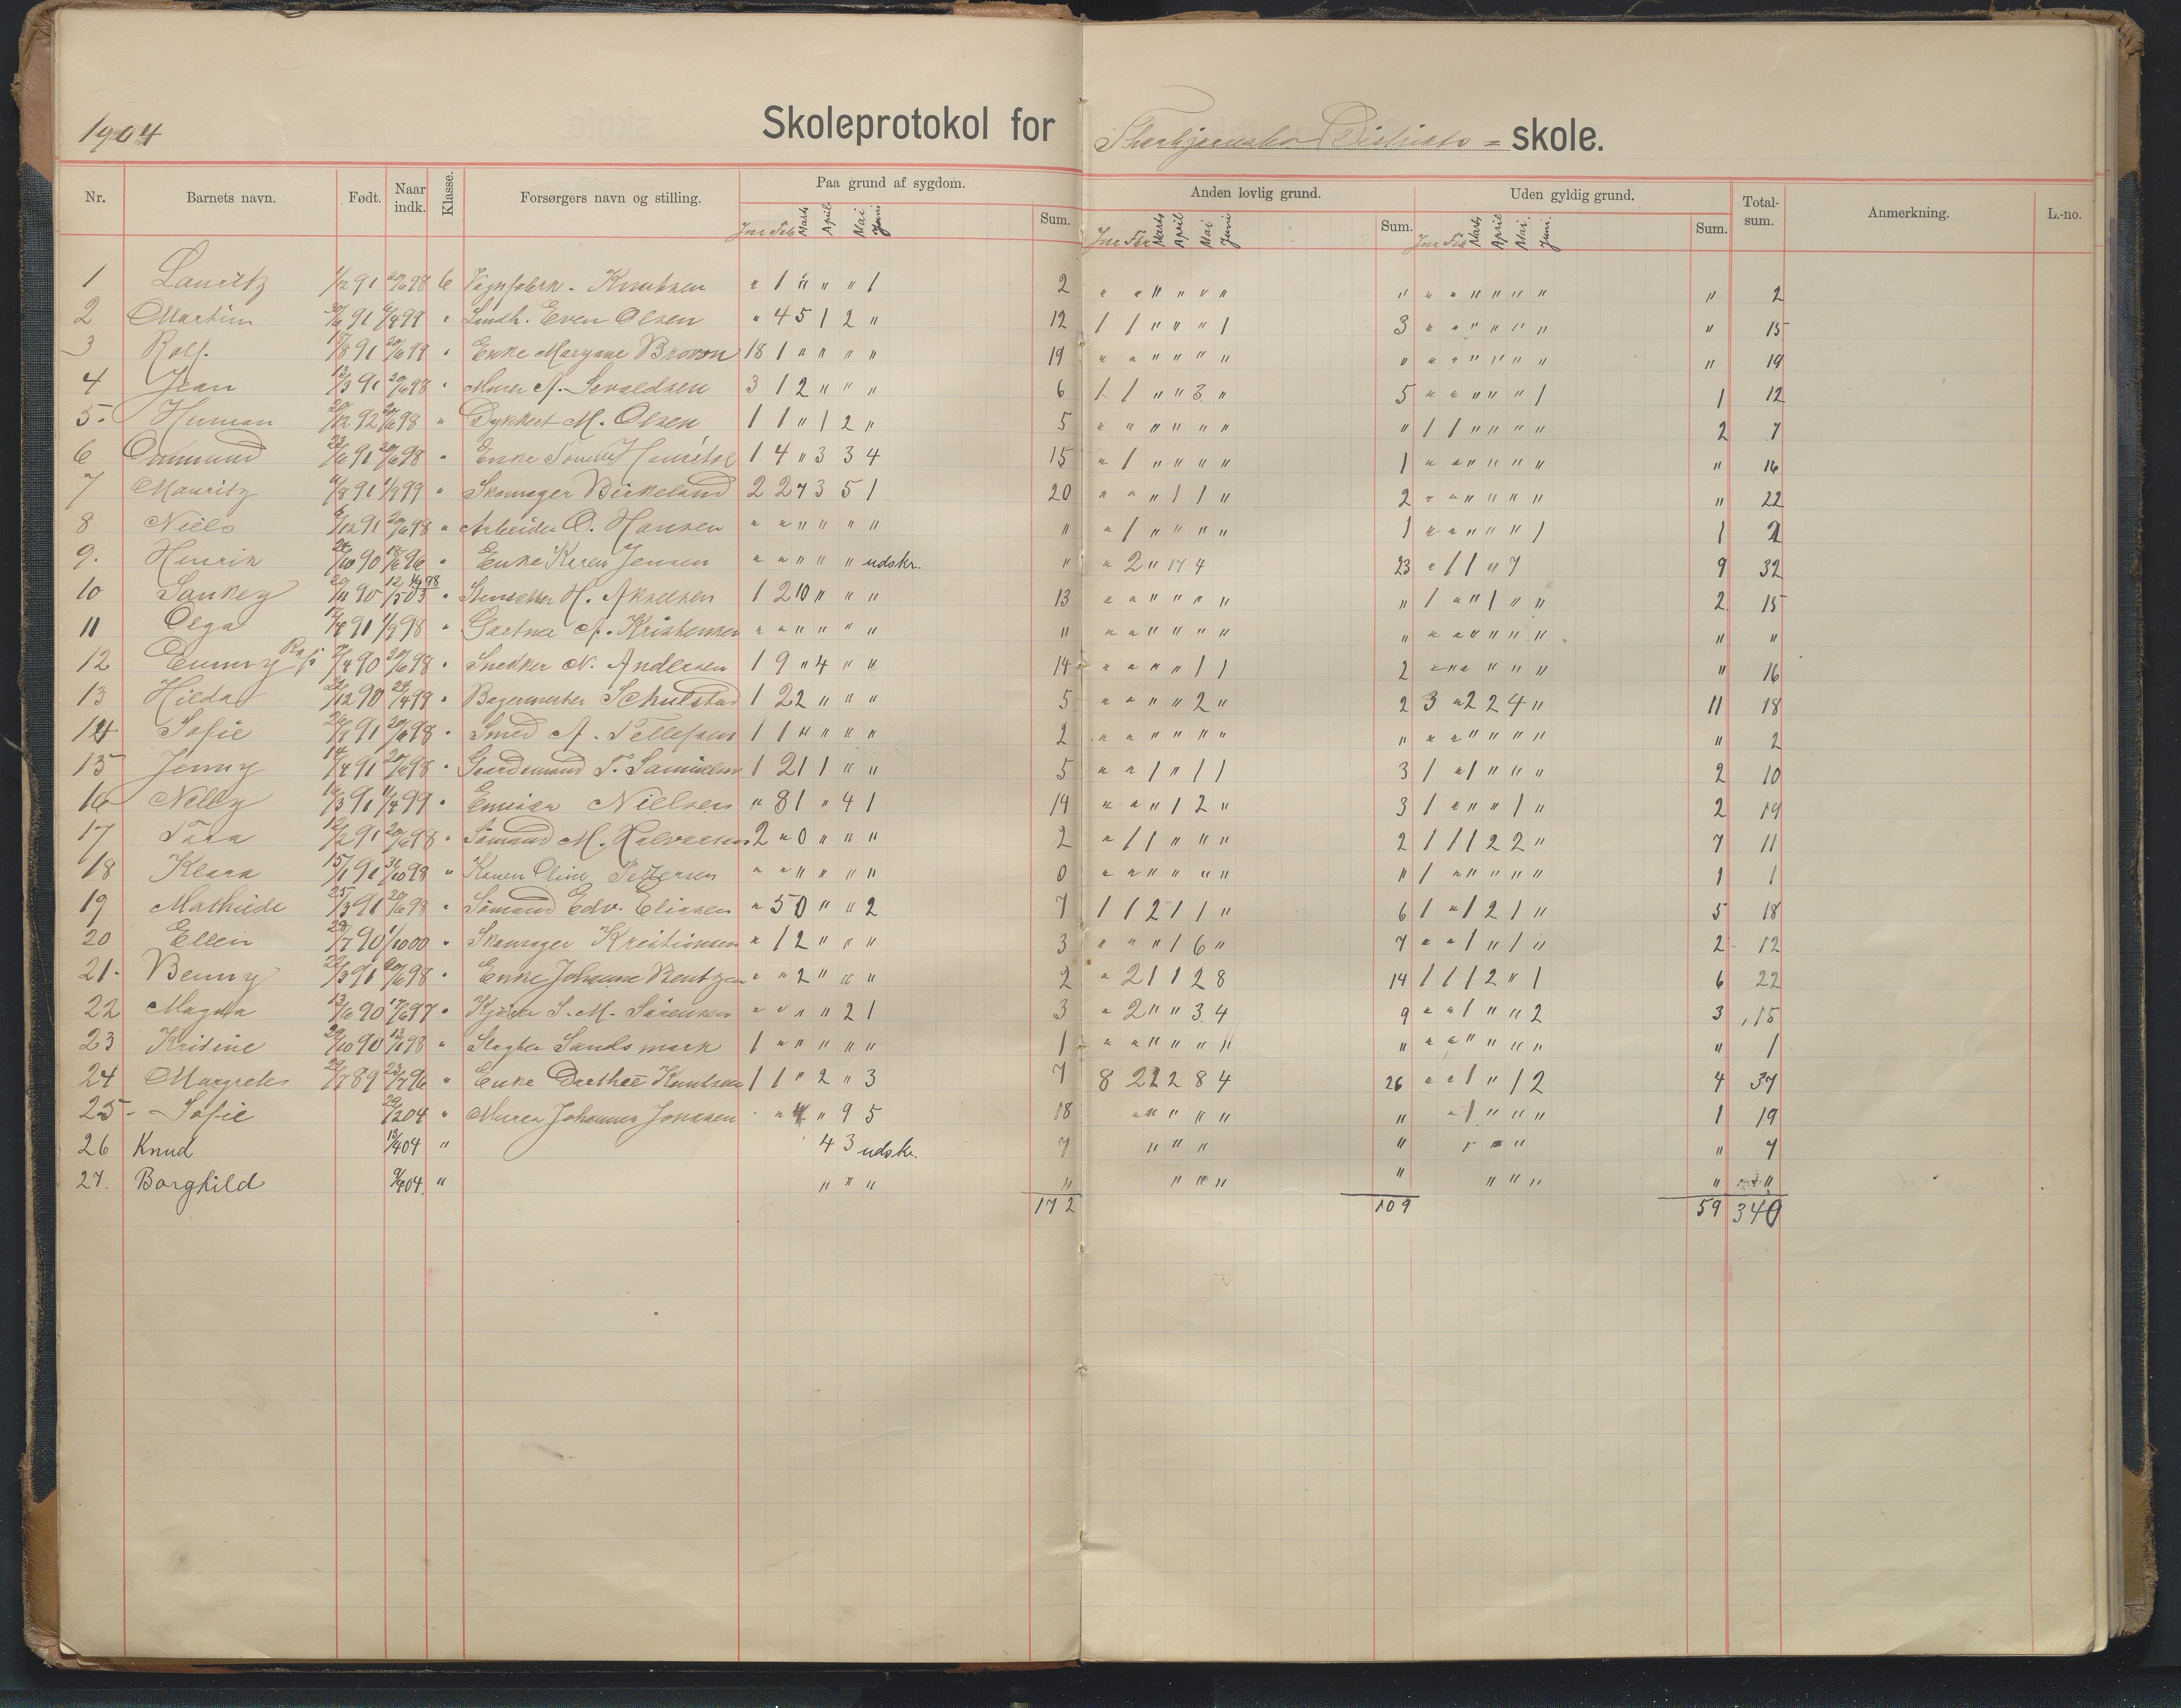 1904
Skoleprotokol for Districts = skole.
Nr. Barnets navn. Født. Naar indk. Klasse. Forsørgers navn og stilling. Paa grund af sygdom. Sum. Anden lovlig grund. Sum. Uden gyldig grund. Sum. Total-sum. Anmerkning. L.-no.
Jnr Feb Marts April Mai Juni Jnr Feb Marts April Mai Juni Jnr Feb Marts April Mai Juni.
1 Lauritz 1/12 91 20/6 98 6 Vognfabrk. Knutsen " 1 " " " 1 2 " " " " " " " " " " " " " " 2
2 Martin 30/6 91 6/4 99 " Even Olsen " 4 5 1 2 " 12 1 1 " " " 1 3 " " " " " " " 15
3 Rolf. 15/8 91 20/6 99 " Enke Margane Brovon 18 1 " " " " 19 " " " " " " " " " " " " " " 19
4 Jean 13/3 91 20/6 98 " Murer A. Sevaldsen 3 1 2 " " " 6 1 1 " " 3 " 5 " " " " " 1 1 12
5. Herman 20/12 92 20/6 98 " Dykkert M. Olsen 1 1 " 1 2 " 5 " " " " " " " 1 1 " " " " 2 7
6 Ommund 23/6 91 20/6 98 " Enke 1 4 " 3 3 4 15 " 1 " " " " 1 " " " " " " " 16
7 Mauritz 11/8 91 1/9 99 " Skomager Birkeland 2 2 7 3 5 1 20 " " " 1 1 " 2 " " " " " " " 22
8 Niels 6/12 91 20/6 98 " Arbeider O. Hansen " " " " " " " " 1 " " " " 1 " " " " " 1 1 2
9. Henrik 24/10 90 18/6 96 " Enke Karen Jensen " " " " " udskr. " " 2 " 17 4 23 " 1 1 " 7 9 32
10 Sankey 20/11 90 12/5 03 1/4 98 " H. Akselsen 1 2 10 " " " 13 " " " " " " " 1 " " 1 " " 2 15
11 Olga 17/4 91 1/9 98 " Gartner A. Kristensen " " " " " " " " " " " " " " " " " " " " " "
12 Emmy 7/4 90 20/6 98 " Snekker N. Andersen 1 9 " 4 " " 14 " " " " 1 1 2 " " " " " " " 16
13 Hilda 22/12 90 24/4 99 " Bagermester Schulstad 1 2 2 " " " 5 " " " " 2 " 2 3 " 2 2 4 " 11 18
14 Sofie 26/8 91 20/6 98 " Smed A. Tellefsen 1 1 " " " " 2 " " " " " " " " " " " " " " 2
15 Jenny 14/4 91 20/6 98 " Gaardsmand T. Samuelsen 1 2 1 1 " " 5 " " 1 " 1 1 3 1 " 1 " " " 2 10
16 Nelly 10/3 91 11/4 99 " Nielsen " 8 1 " 4 1 14 " " " 1 2 " 3 1 " " " 1 " 2 19
17 Tora 12/2 91 20/6 98 " Sömand M. Halvorsen 2 " 0 " " " 2 " 1 1 " " " 2 1 1 1 2 2 " 7 11
18 Klara 15/1 91 31/10 98 " Karen Oline Pettersen " " " " " " 0 " " " " " " " 1 " " " " " 1 1
19 Mathilde 25/3 91 20/6 98 " Sömand Edv. Eliasen " 5 0 " " 2 7 1 1 2 1 1 " 6 1 " 1 2 1 " 5 18
20 Ellen 29/7 90 1/10 00 " Skomager Kristiansen " 1 2 " " " 3 " " " 1 6 " 7 " " 1 " 1 " 2 12
21. Benny 22/3 91 20/6 98 " Enke Johanne Bentzen " " 2 " " " 2 " 2 1 1 2 8 14 1 1 1 2 " 1 6 22
22 Magna 13/6 90 17/6 97 " S. M. Sörensen " " " " 2 1 3 " 2 " " 3 4 9 " " 1 " " 2 3 15
23 Kristine 29/10 90 12/1 98 " Slagter Landsmark 1 " " " " " 1 " " " " " " " " " " " " " " 1
24 Margrete 22/7 89 23/7 96 " Enke Dorthee Knutsen 1 1 " 2 " 3 7 8 2 2 2 8 4 26 " " 1 " 1 2 4 37
25 - Sofie 29/2 04 " Murer Johannes Jonassen " 4 " 9 5 18 " " " " " " " 1 " " " 1 19
26 Knud 13/4 04 " 4 3 udskr. 7 " " " " " " " " 7
27. Borghild 9/4 04. " " " " " " " " " " " " " "
172 109 59 340